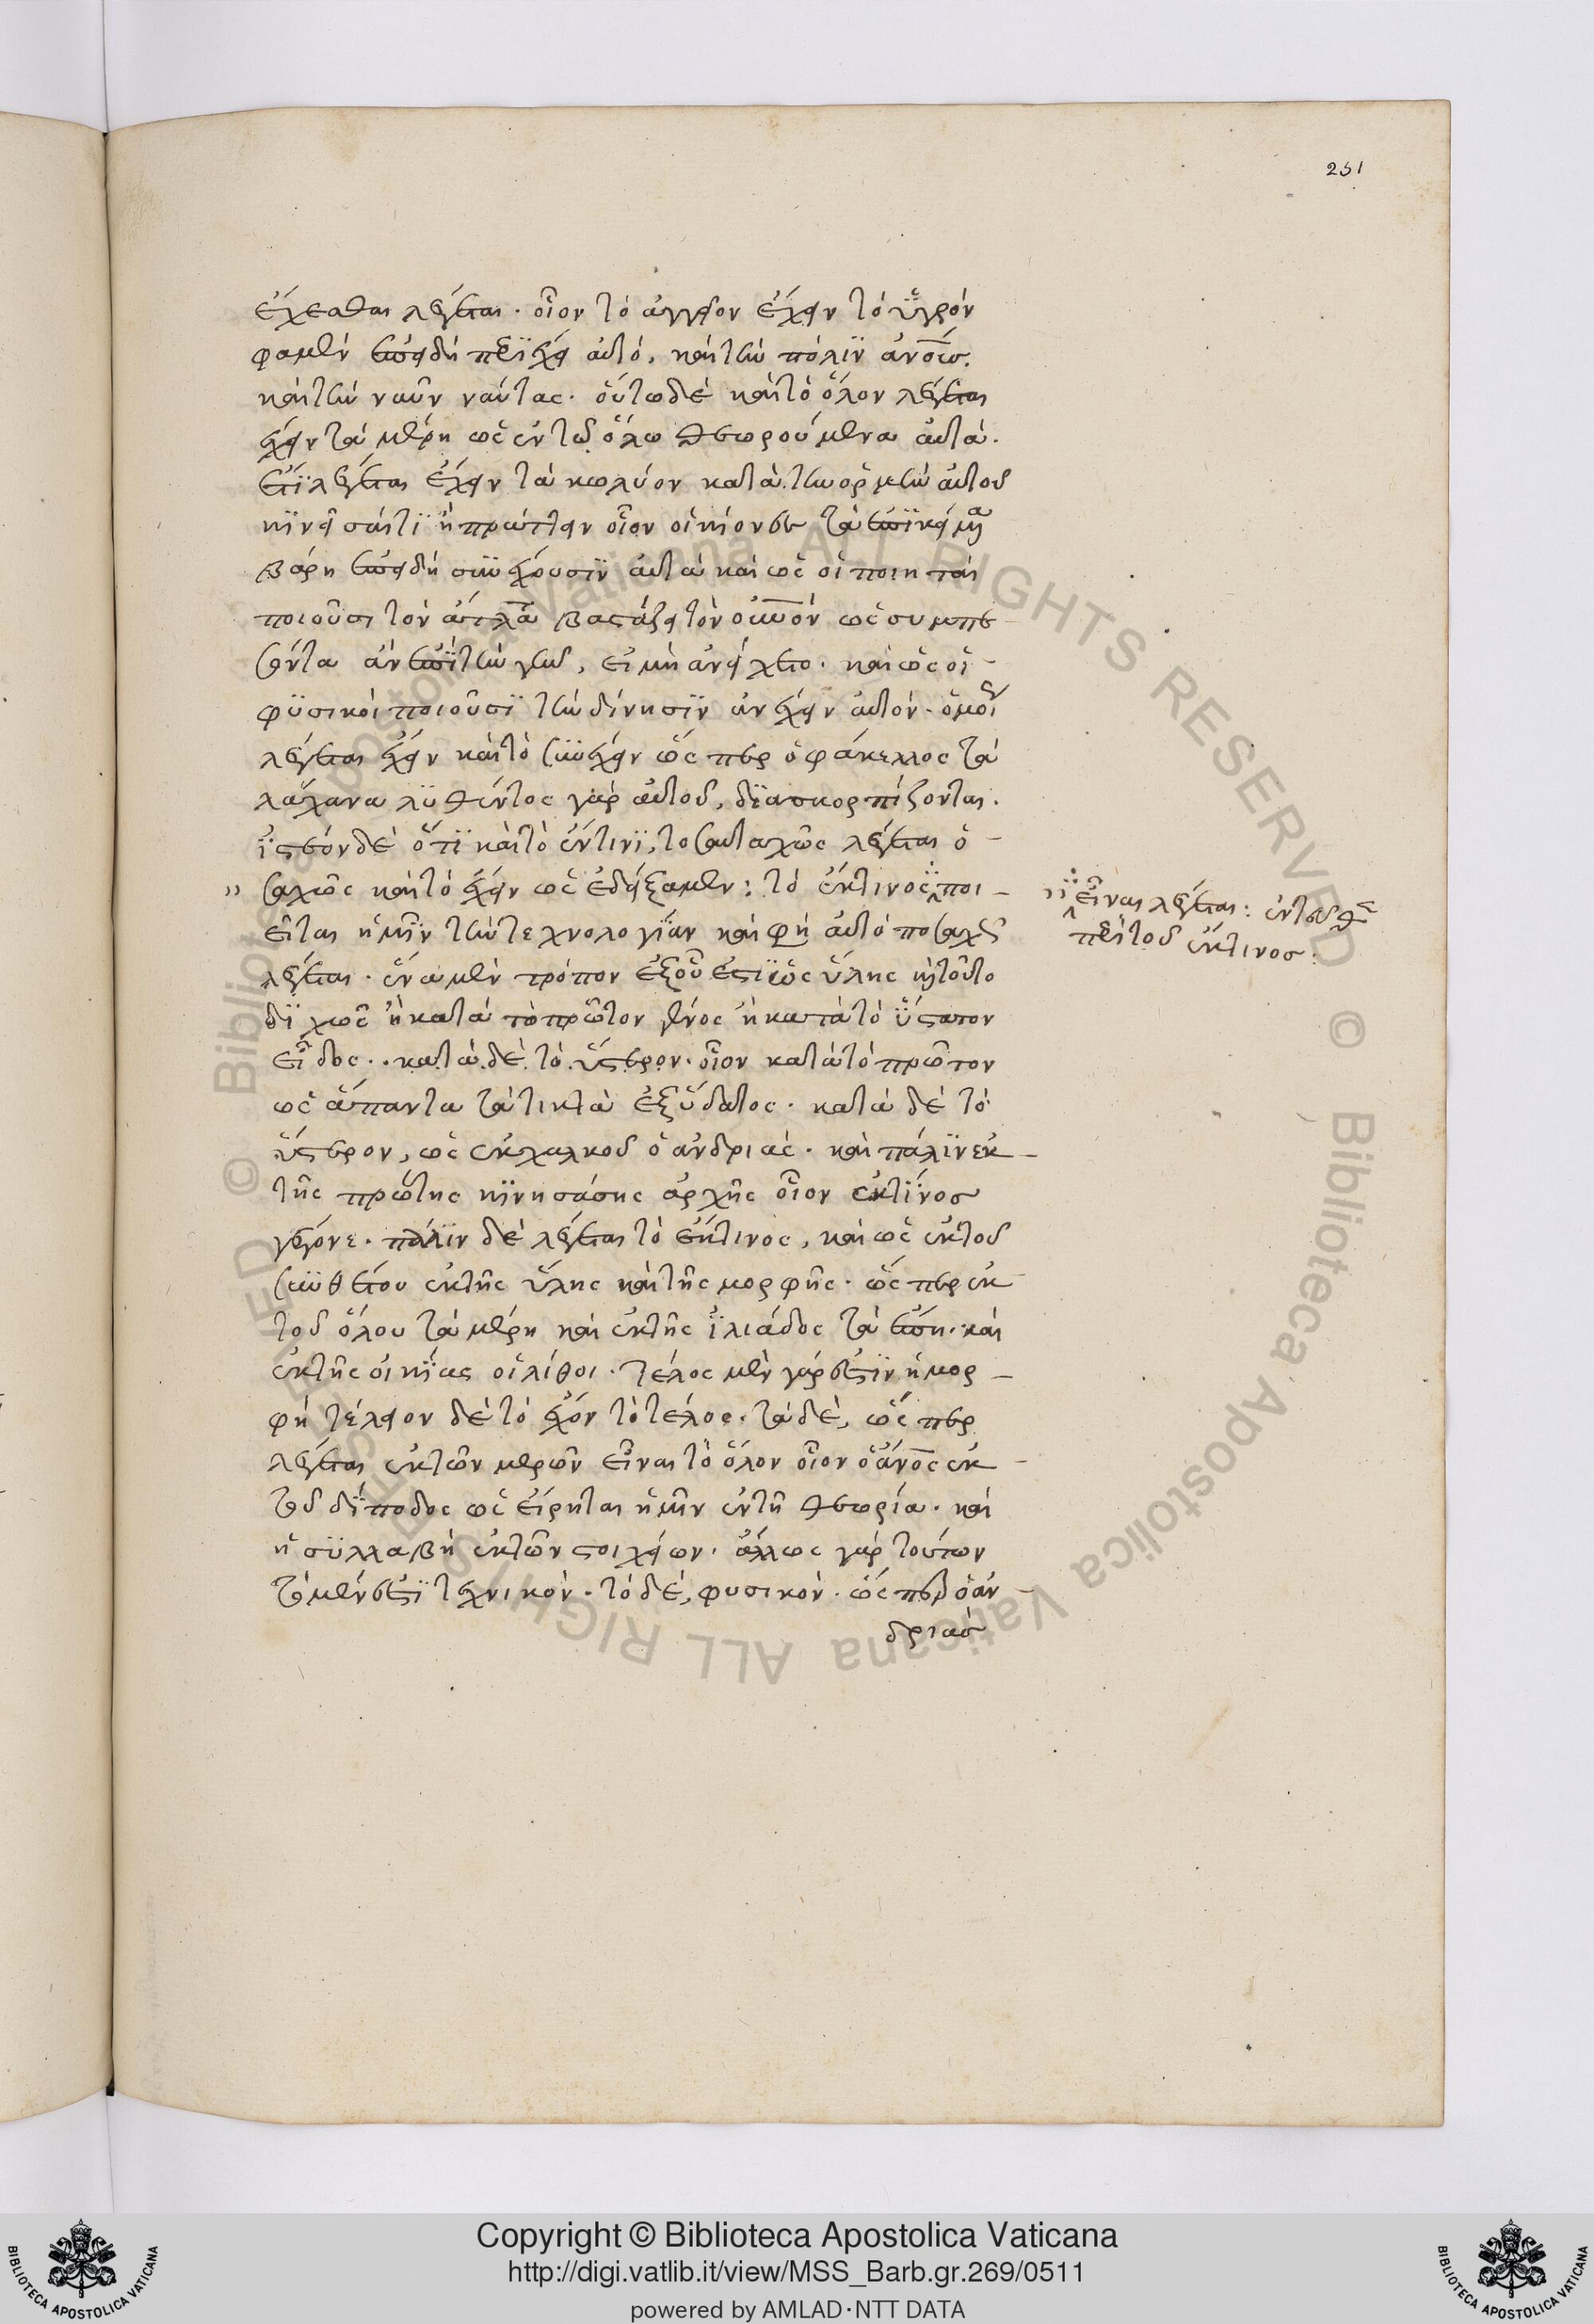 251
ἔχεσθαι λέγεται. οἷον τὸ ἀγγεῖον ἔχειν τὸ ὑγρόν
φαμὲν ἐπειδὴ περιέχει αὐτό, καὶ τὴν πόλιν ἀνους.
καὶ τὴν ναῦν ναύτας. οὕτω δὲ καὶ τὸ ὅλον λέγεται
ἔχειν τὰ μέρη ὡς ἐν τῷ ὅλω θεωρούμενα αὐτά.
ἔτι λέγεται ἔχειν τὰ κωλύον κατὰ τὴν ὁρμὴν αὐτοῦ
κινεῖσαι τί ἢ πράττειν οἷον οἱ κίονες τὰ ἐπικείμενα
βάρη ἐπειδὴ συνέχουσιν αὐτὰ καὶ ὡς οἱ ποιηταὶ
ποιοῦσι τὸν ἄτλαντα βαστάζει τὸν οὐνον ὡς συμπε
σόντα ἂν ἐπὶ τὴν γῆν, εἰ μὴ ἀνείχετο. καὶ ὡς οἱ
φυσικοὶ ποιοῦσι τὴν δίνησιν ἀνέχειν αὐτόν. ὁμοίως
λέγεται ἔχειν καὶ τὸ συνέχειν ὥς περ ὁ φάκελλος τὰ
λάχανα λυθέντος γὰρ αὐτοῦ, διασκορπίζονται.
ἰστέον δὲ ὅτι καὶ τὸ ἔν τινι, τοσαυταχῶς λέγεται ὁ
σαχῶς καὶ τὸ ἔχειν ὡς ἐδείξαμεν: τὸ ἔκ τινος ποι
εῖται ἡμῖν τὴν τεχνολογίαν καὶ φὴ αὐτὸ ποσαχῶς
λέγεται. ἕνα μὲν τρόπον ἐξοὗ ἐστὶ ὡς ὕλης κὶ τοῦτο
διχῶς ἢ κατὰ τὸ πρῶτον γένος ἢ κατὰ τὸ ὕστατον
εἶδος. κατὰ δὲ τὸ ὕστερον. οἷον κατὰ τὸ πρῶτον
ὡς ἅπαντα τὰ τικτὰ ἐξ ὕδατος. κατὰ δὲ τὸ
ὕστερον, ὡς ἐκ χαλκοῦ ὁ ἀνδριάς. καὶ πάλιν ἐκ
τῆς πρώτης κινησάσης ἀρχῆς οἷον ἐκ τίνος
γέγονε. πάλιν δὲ λέγεται τὸ ἔκ τινος, καὶ ὡς ἐκ τοῦ
συνθέτου ἐκ τῆς ὕλης καὶ τῆς μορφῆς. ὥς περ ἐκ
τοῦ ὅλου τὰ μέρη καὶ ἐκ τῆς ἰλιάδος τὰ ἔπη. καὶ
ἐκ τῆς οἰκίας οἱ λίθοι. τέλος μὲν γάρ ἐστιν ἡ μορ
φὴ τέλειον δὲ τὸ ἔχον τὸ τέλος. τὰ δὲ, ὥς περ
λέγεται ἐκ τῶν μερῶν εἶναι τὸ ὅλον οἷον ὁ ἄνος ἐκ
τοῦ δίποδος ὡς εἴρηται ἡμῖν ἐν τῆ θεωρία. καὶ
ἡ συλλαβὴ ἐκ τῶν στοιχείων. ἄλλως γὰρ τούτων
τὸ μέν ἐστι τεχνικόν. τὸ δέ, φυσικόν. ὥς περ ὁ ἀν
δριὰς
εἶναι λέγεται: ἐντεῦθεν
περὶ τοῦ ἔκ τινος.
Copyright © Biblioteca Apostolica Vaticana
http://digi.vatlib.it/view/MSS_Barb.gr.269/0511
powered by AMLAD·NTT DATA